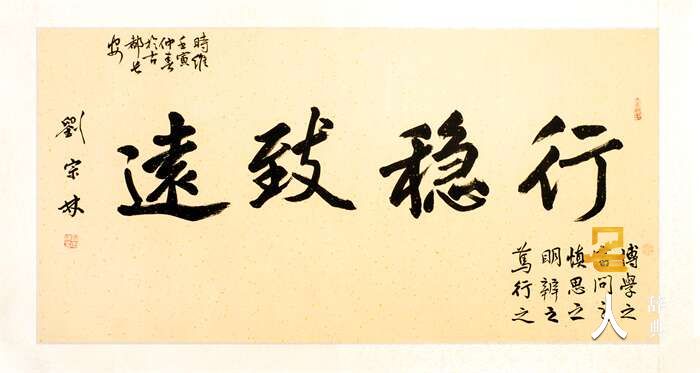 行稳致遠
博學之
審問之
慎思之
明辨之
篤行之
時維
壬寅
仲春
於古
都长
安
劉宗林
名人辞典